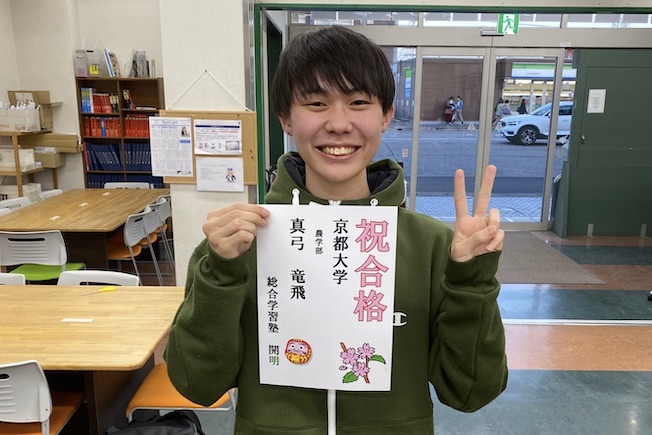 祝合格
京都大学
農学部
真弓 竜飛
総合学習塾 開明